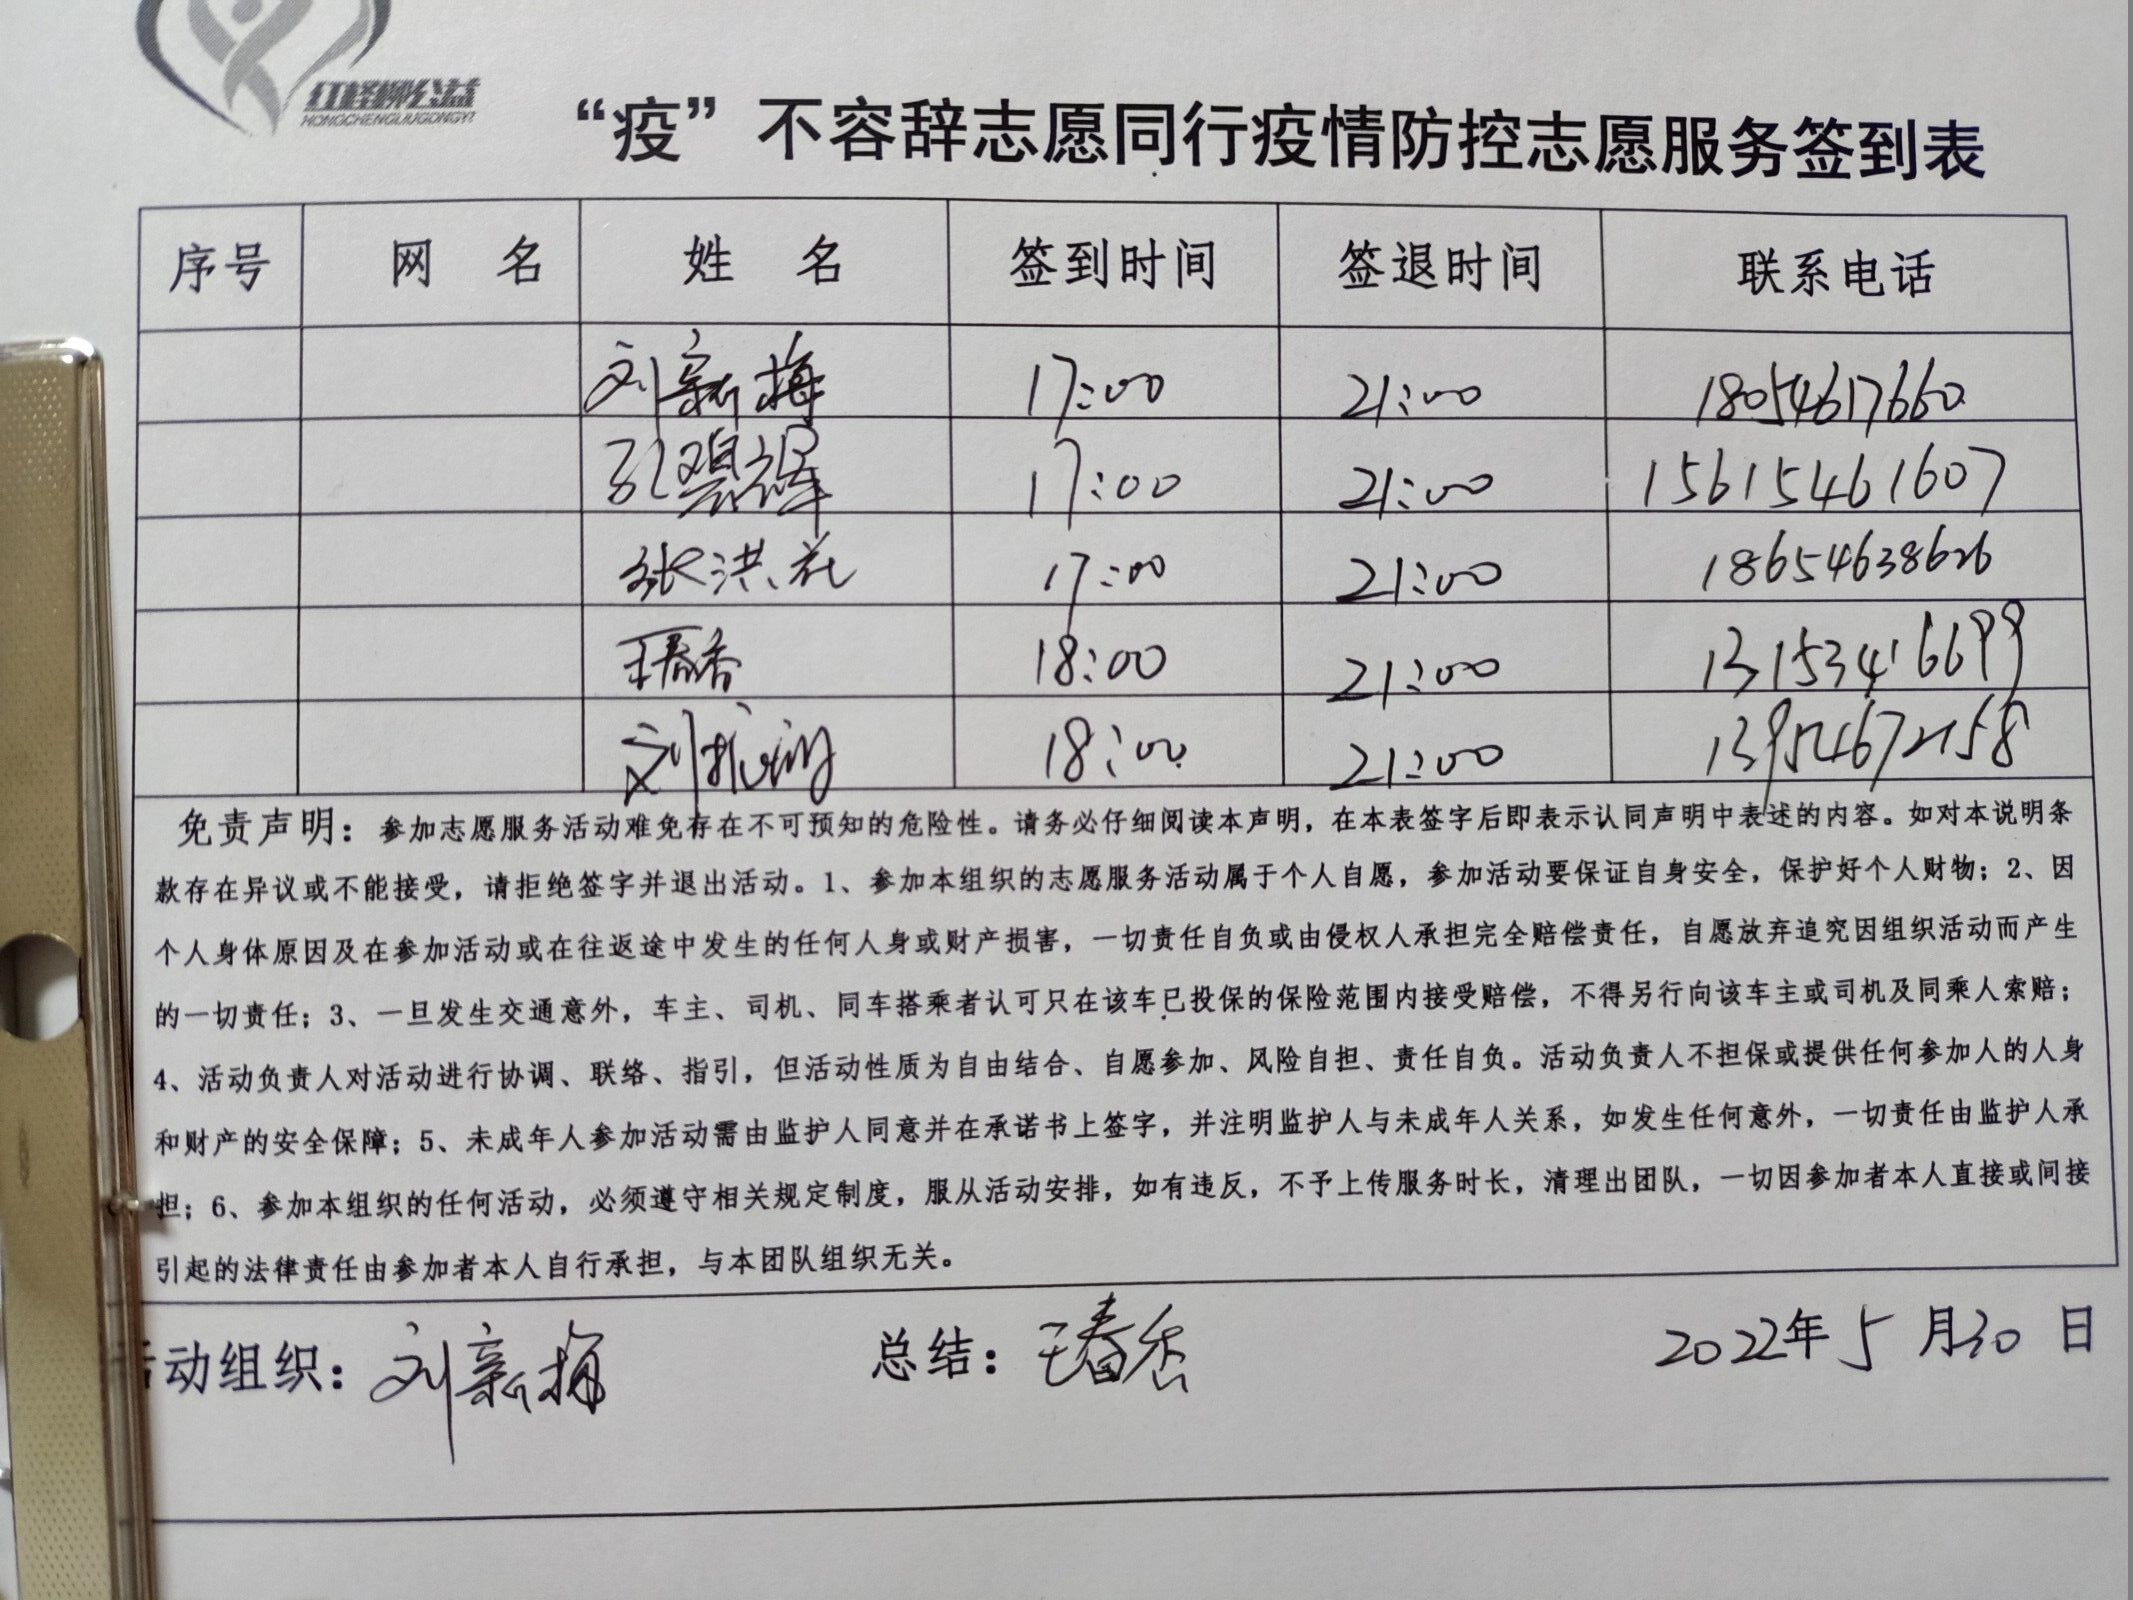 红柽柳公益
HONGCHENGLIUGONGYI
“疫”不容辞志愿同行疫情防控志愿服务签到表
序号 网 名 姓 名 签到时间 签退时间 联系电话
刘新梅 17:00 21:00 18054617660
孔碧辉 17:00 21:00 15615461607
张洪花 17:00 21:00 18654638626
王春香 18:00 21:00 13153416699
刘 18:00 21:00 13954672158
免责声明：参加志愿服务活动难免存在不可预知的危险性。请务必仔细阅读本声明，在本表签字后即表示认同声明中表述的内容。如对本说明条
款存在异议或不能接受，请拒绝签字并退出活动。1、参加本组织的志愿服务活动属于个人自愿，参加活动要保证自身安全，保护好个人财物；2、因
个人身体原因及在参加活动或在往返途中发生的任何人身或财产损害，一切责任自负或由侵权人承担完全赔偿责任，自愿放弃追究因组织活动而产生
的一切责任；3、一旦发生交通意外，车主、司机、同车搭乘者认可只在该车已投保的保险范围内接受赔偿，不得另行向该车主或司机及同乘人索赔；
4、活动负责人对活动进行协调、联络、指引，但活动性质为自由结合、自愿参加、风险自担、责任自负。活动负责人不担保或提供任何参加人的人身
和财产的安全保障；5、未成年人参加活动需由监护人同意并在承诺书上签字，并注明监护人与未成年人关系，如发生任何意外，一切责任由监护人承
担；6、参加本组织的任何活动，必须遵守相关规定制度，服从活动安排，如有违反，不予上传服务时长，清理出团队，一切因参加者本人直接或间接
引起的法律责任由参加者本人自行承担，与本团队组织无关。
活动组织：刘新梅 总结：王春香 2022年5月30日